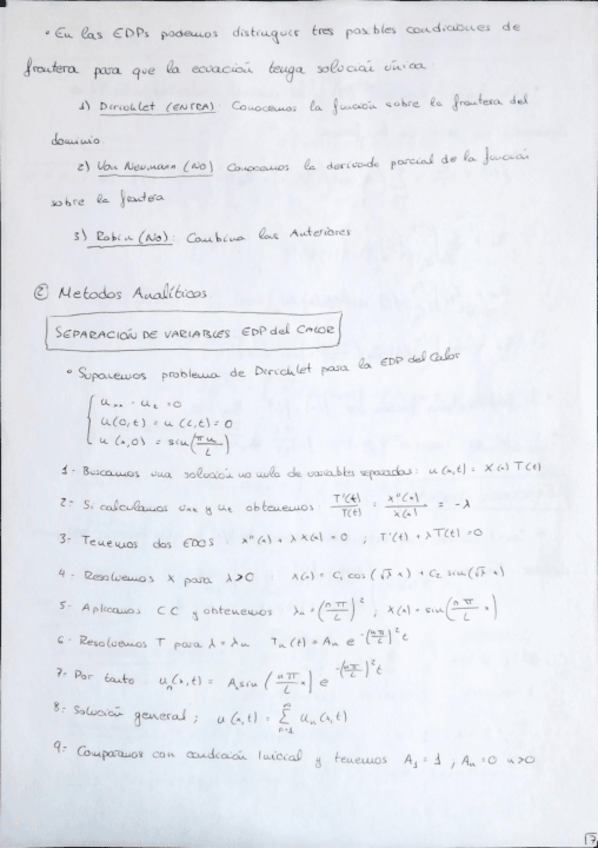 • En las EDPs podemos distinguir tres posibles condiciones de
frontera para que la ecuación tenga solución única
1) Dirichlet (ENTRA): Conocemos la función sobre la frontera del
dominio
2) Von Neumann (NO) Conocemos la derivada parcial de la función
sobre la frontera
3) Robin (No): Combina las Anteriores
② Metodos Analíticos
SEPARACIÓN DE VARIABLES EDP del CALOR
• Suponemos problema de Dirichlet para la EDP del Calor
u_xx - u_t = 0
u(0,t) = u(L,t) = 0
u(x,0) = sin(πx/L)
1- Buscamos una solución no nula de variables separadas: u(x,t) = X(x) T(t)
2- Si calculamos u_xx y u_t obtenemos T'(t)/T(t) = X''(x)/X(x) = -λ
3- Tenemos dos EDOS X''(x) + λ X(x) = 0 ; T'(t) + λT(t) = 0
4- Resolvemos X para λ>0 : X(x) = C₁ cos(√λ x) + C₂ sin(√λ x)
5- Aplicamos CC y obtenemos λn = (nπ/L)² ; X(x) = sin(nπ/L x)
6- Resolvemos T para λ = λn Tn(t) = An e^-(nπ/L)²t
7- Por tanto un(x,t) = An sin(nπ/L x) e^-(nπ/L)²t
8- Solución general ; u(x,t) = Σ n=1 ∞ un(x,t)
9- Comparamos con condición Inicial y tenemos A₁ = 1 ; An = 0 n>0
17